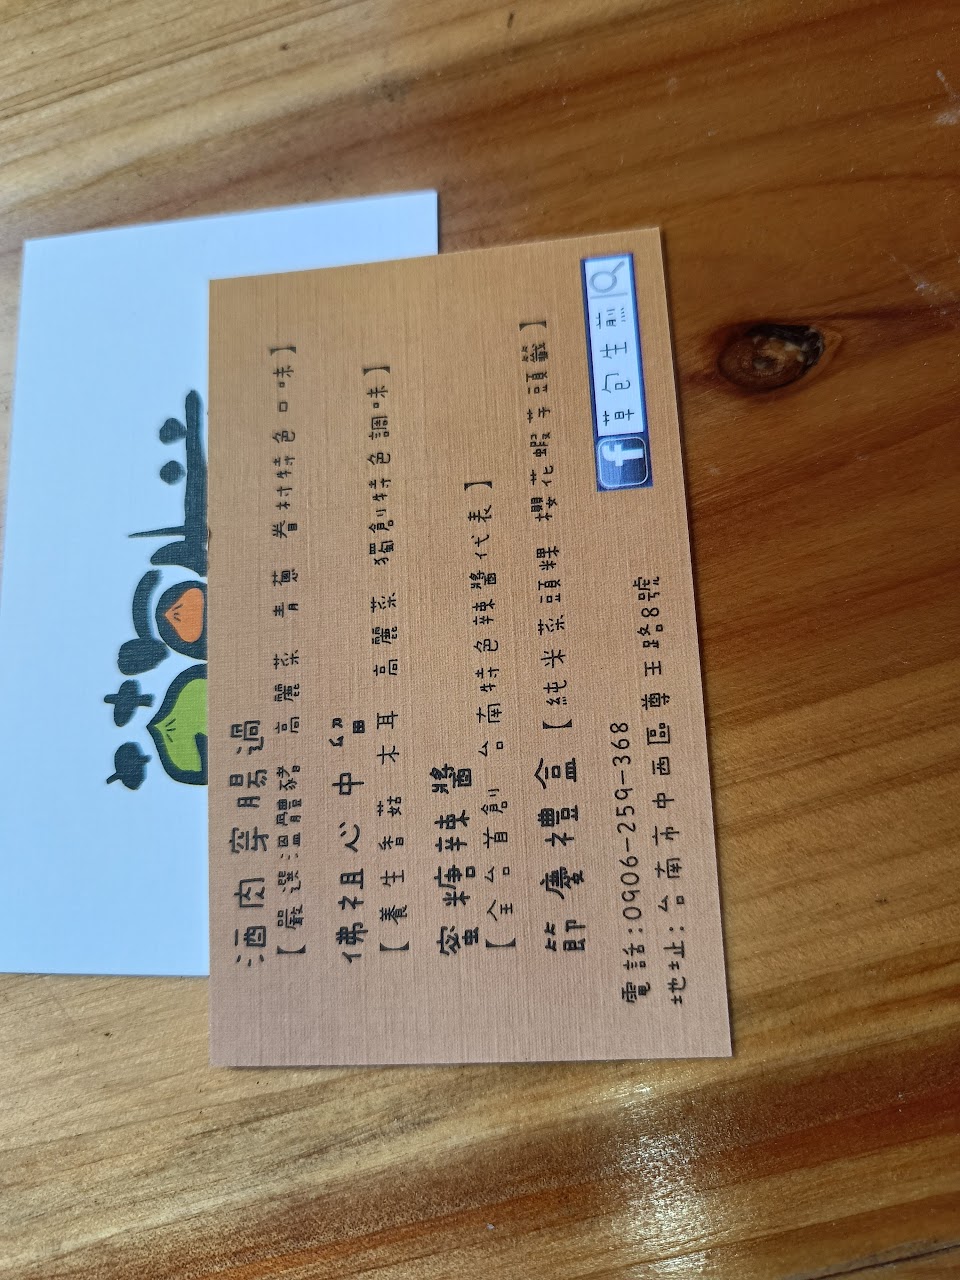 酒肉穿腸過
【嚴選溫體豬 高麗菜 青蔥 眷村特色口味】
佛祖心中留
【養生香菇 木耳 高麗菜 獨創特色調味】
蜜糖辣醬
【全台首創 台南特色辣醬代表】
節慶禮盒【純米菜頭粿 櫻花蝦芋頭籤】
電話:0906-259-368
地址:台南市中西區尊王路8號
f 草包生煎